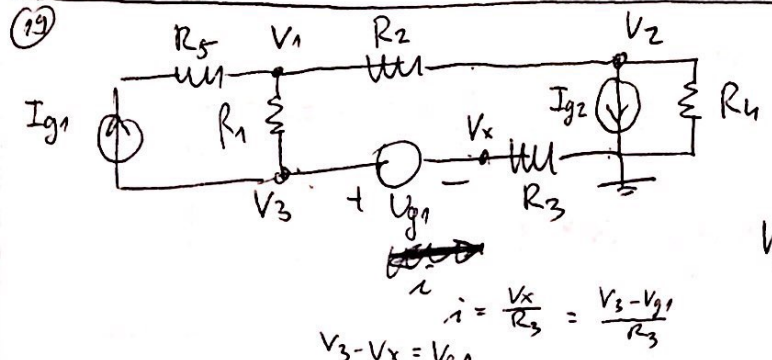 19
R5 V1 R2 V2
Ig1 R1 Ig2 R4
Vx
V3 + Vg1 − R3
i
i = Vx/R3 = (V3 − Vg1)/R3
V3 − Vx = Vg1
V